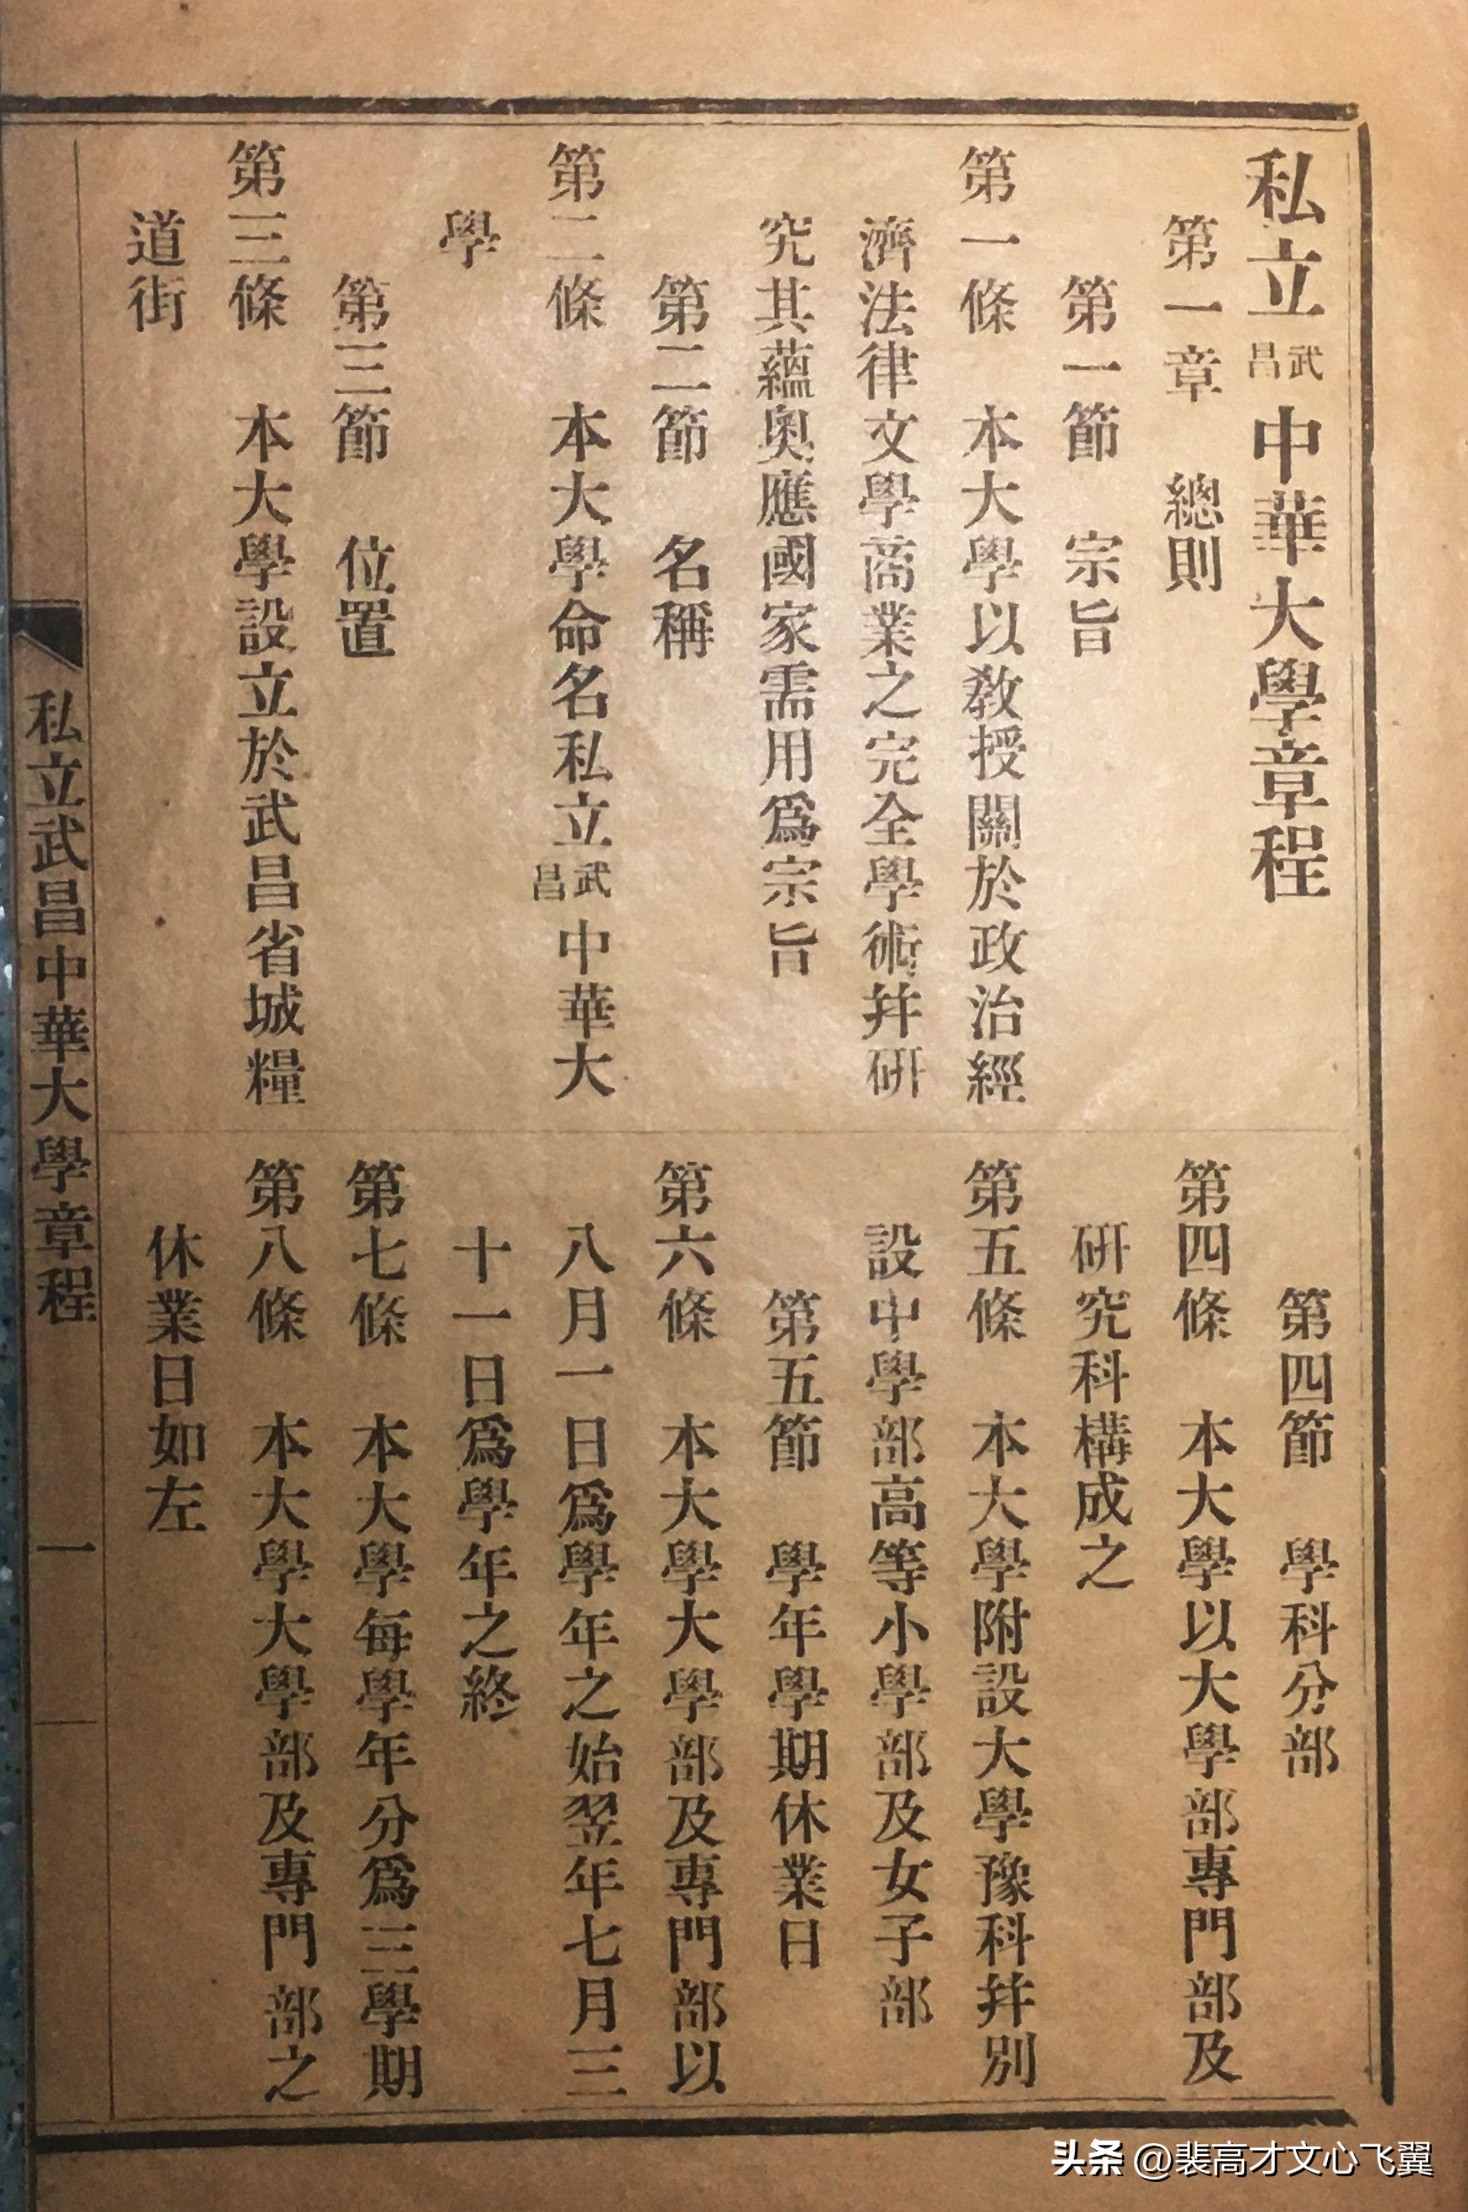 私立武昌中華大學章程
第一章 總則
第一節 宗旨
第一條 本大學以教授關於政治經
濟法律文學商業之完全學術幷研
究其蘊奧應國家需用爲宗旨
第二節 名稱
第二條 本大學命名私立武昌中華大
學
第三節 位置
第三條 本大學設立於武昌省城糧
道街
第四節 學科分部
第四條 本大學以大學部專門部及
研究科構成之
第五條 本大學附設大學豫科幷別
設中學部高等小學部及女子部
第五節 學年學期休業日
第六條 本大學大學部及專門部以
八月一日爲學年之始翌年七月三
十一日爲學年之終
第七條 本大學每學年分爲三學期
第八條 本大學大學部及專門部之
休業日如左
私立武昌中華大學章程 一
头条 @裴高才文心飞翼